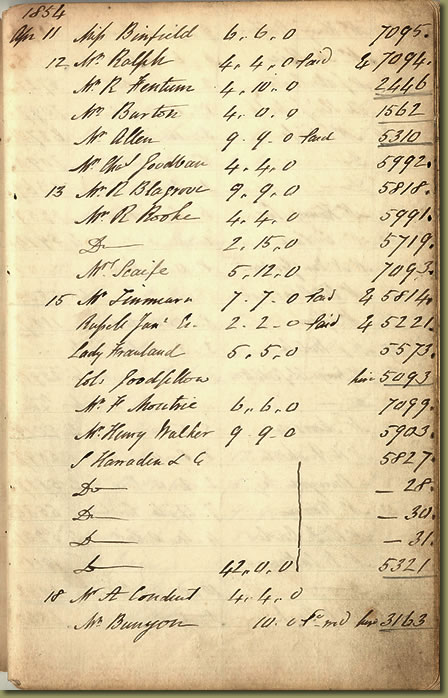 1854
Apr 11 Miss Binfield 6,, 6,, 0 7095.
12 Mr Ralph 4,, 4,, 0 Paid & 7094.
Mr R Fentum 4,, 10,, 0 2446
Mr Barton 4,, 0,, 0 1562
Mr Allen 9,, 9,, 0 Paid 5310
Mr Chas Goodban 4,, 4,, 0 5992.
13 Mr R Blagrove 9,, 9,, 0 5818.
Mr R Rooke 4,, 4,, 0 5991.
Do 2,, 15,, 0 5719.
Mrs Scaife 5,, 12,, 0 7093.
15 Mr 7,, 7,, 0 Paid & 5814.
Russell Junr 2,, 2,, 0 Paid & 5221.
Lady 5,, 5,, 0 5573.
Colo Goodfellow hire 5093
Mr F Moutrie 6,, 6,, 0 7099.
Mr Henry Walker 9,, 9,, 0 5903.
S Harraden & Co 5827.
Do — 28.
Do — 30.
Do — 31.
Do 42,, 0,, 0 5321
18 Mr A Conduit 4,, 4,, 0
Mr Bunyon 10,, 0 hire 3163